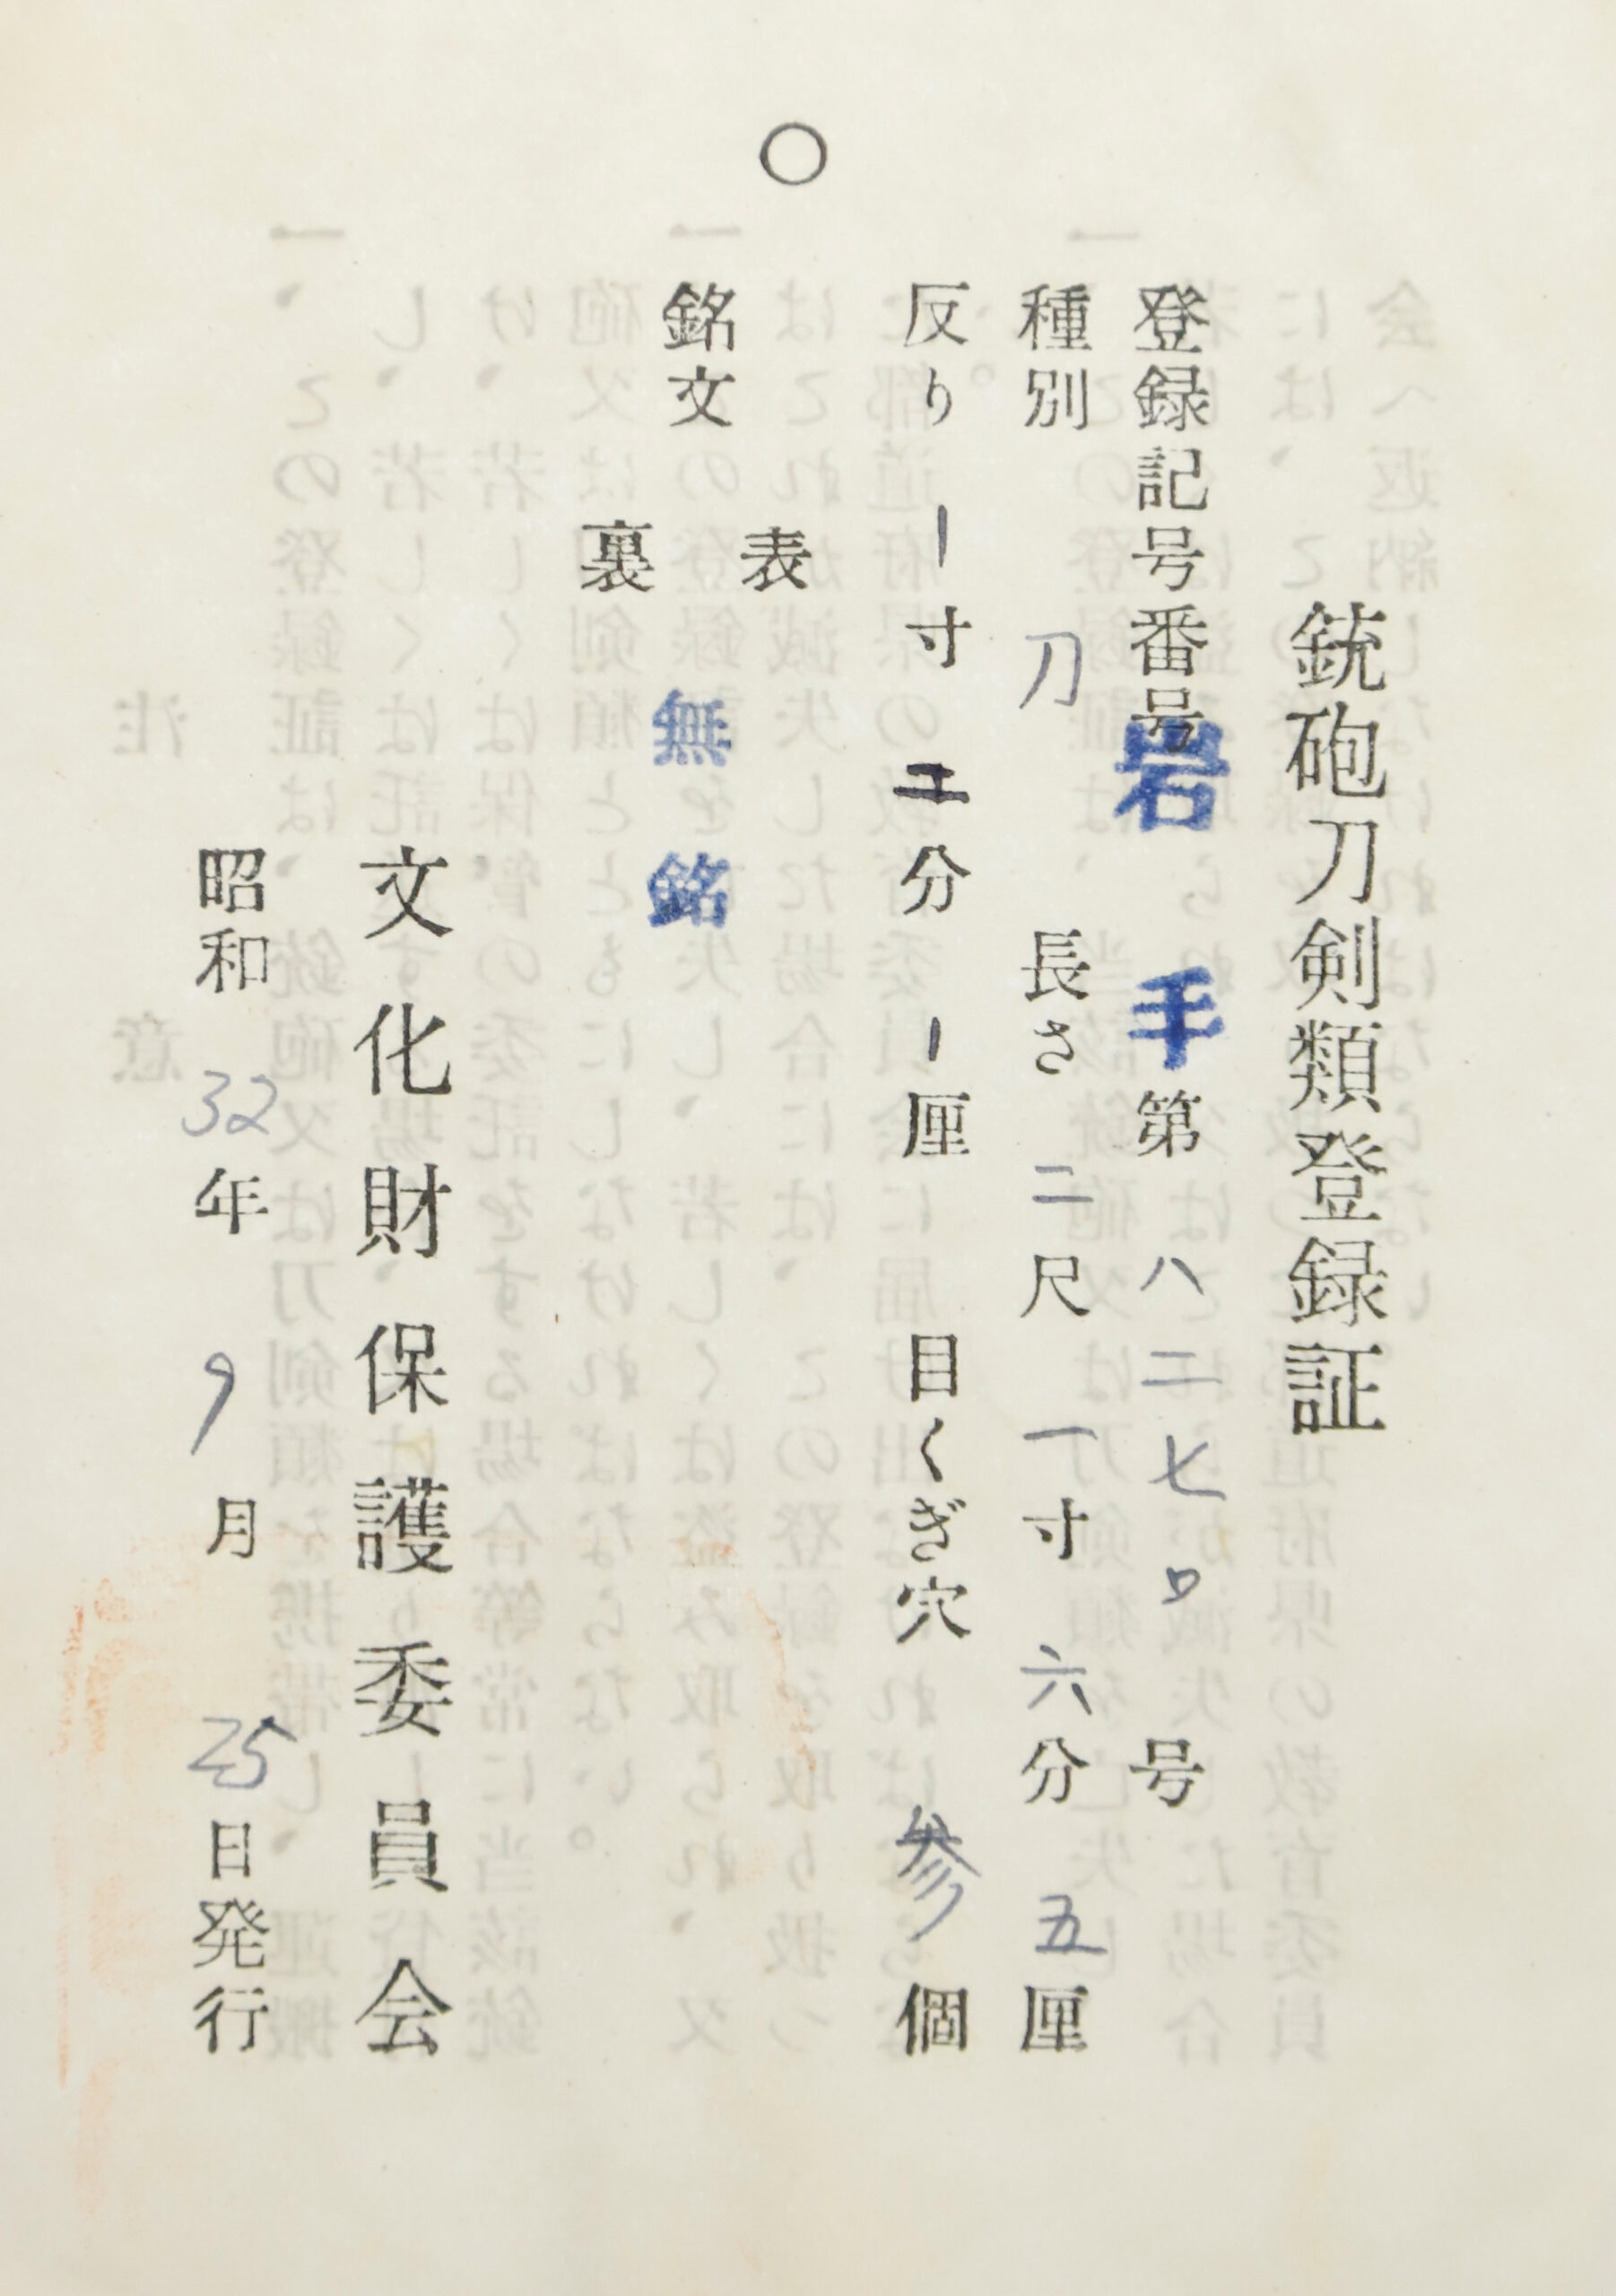 銃砲刀剣類登録証
登録記号番号 岩手 第 八二七〇 号
種別 刀 長さ 二尺 一寸 六分 五厘
反り 寸 分 厘 目くぎ穴 参 個
表
銘文 無銘
裏
文化財保護委員会
昭和 32 年 9 月 25 日発行